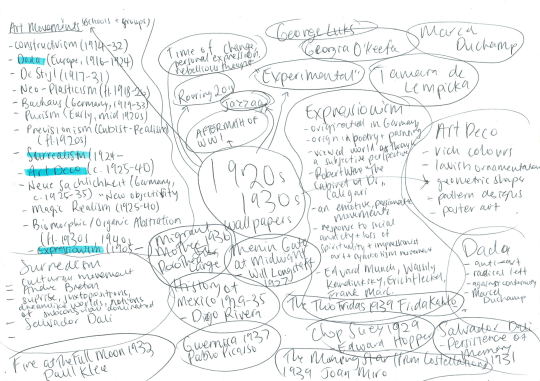 Art Movements (schools + groups)
- constructivism (1914-32)
- Dada (Europe, 1916-1924)
- De Stijl (1917-31)
- Neo-Plasticism
- Bauhaus (Germany, 1919-33)
- Purism (Early, mid 1920s)
- Precisionism (Cubist-Realism)
(fl. 1920s)
- Surrealism (1924-
- Art Deco (c. 1925-40)
- Neue Sachlichkeit (Germany,
c. 1925-35) "New objectivity
- Magic Realism (1925-40)
- Biomorphic/Organic Abstration
(fl. 1930s, 1940s)
- expressionism
Surrealism
- cultural movement
- Andre Breton
- suprise, juxtapositions,
- Salvador Dali
Fire at the Full Moon 1933
Paull Klee
Time of Change,
personal expression,
rebellious
Roaring 20s
jazz age
AFTERMATH OF
WW1
1920s
1930s
wallpapers
George Luks
Georgia O'Keefa
"Experimental"
Marcel
Duchamp
Tamara de
Lempicka
Expressionism
- originated in Germany
- origin in poetry + painting
- viewed world
a subjective perspective
- Robert Wiene The
Cabinet of Dr.
Caligari
- an emotive, passionate
movement
- response to social
- Edvard Munch, Wassily
Kandinsky, Erich Heckel,
Franz Marc
Art Deco
- rich colours
- lavish ornamentation
- geometric shapes
- pattern designs
- poster art
Dada
- anti-art
- radical left
- Marcel
Duchamp
Migrant
Mother 1936
Dorothea
Lange
Menin Gate
at Midnight
Will Longstaff
1927
History of
Mexico 1929-35
- Diego Rivera
Guernica 1937
Pablo Picasso
The Two Fridas 1939 Frida Kahlo
Chop Suey 1929
Edward Hopper
Salvador Dali
- Persistence of
Memory
1931
The Morning Star (from Constellation)
1939 Joan Miro